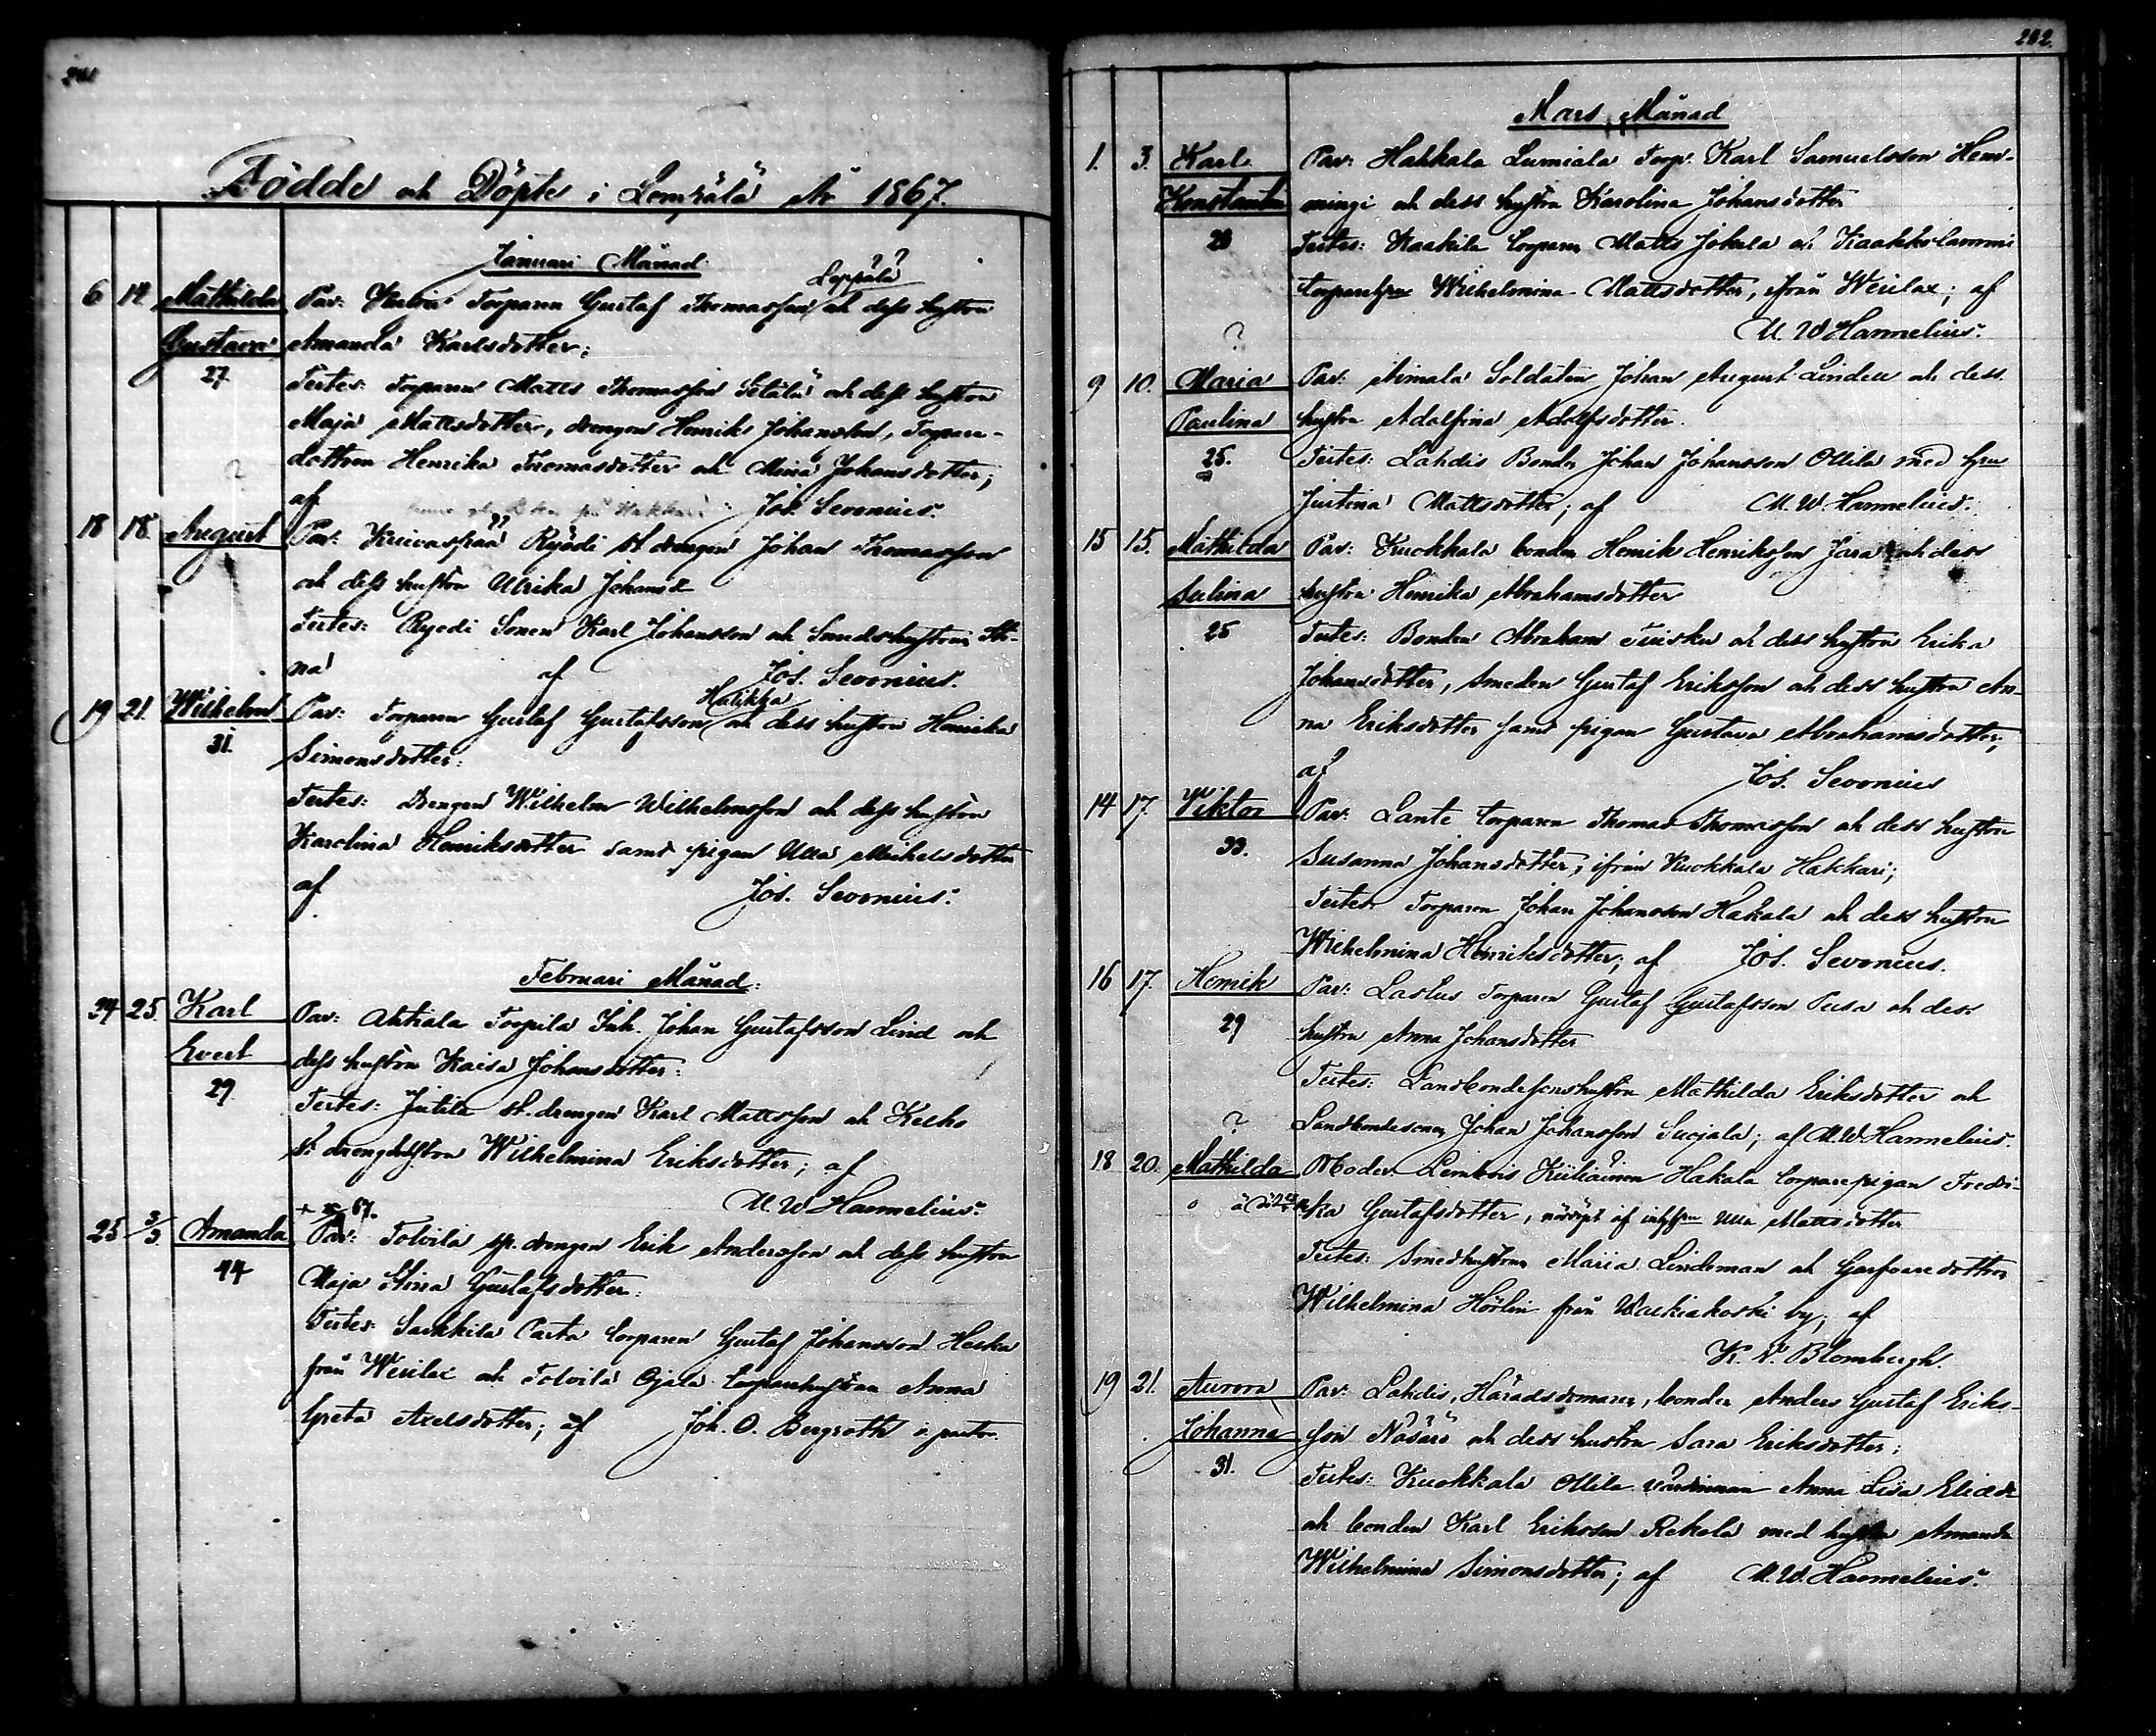 241
Födde och Döpte i Lempälä År 1867.
Januari Månad
Leppälä
6 14 Mathilda Par: Torparen Gustaf Thomasson och dess hustru
Gustava Amanda Karlsdotter;
27. Testes: Torparen Matts Thomasson Setälä och dess hustru
Maja Mattsdotter, drengen Henrik Johansson, Torpare-
dottren Henrika Thomasdotter och Mina Johansdotter;
? af Jos. Sevonius.
18 18. August Par: Kuivaspää Ryödi st. drengen Johan Thomasson
och dess hustru Ulrika Johansdr
Testes: Ryödi Sonen Karl Johansson och Smedshustrun Sti-
na af Jos. Sevonius.
Halikka
19 21. Wilhelm Par: Torparen Gustaf Gustafsson och dess hustru Henrika
31. Simonsdotter.
Testes: Drengen Wilhelm Wilhelmsson och dess hustru
Karolina Henriksdotter samt pigan Ulla Michelsdotter
af Jos. Sevonius.
Februari Månad.
24 25. Karl Par: Ahtiala Torpila Inh. Johan Gustafsson Lind och
Evert dess hustru Kaisa Johansdotter.
29 Testes: Jutila st. drengen Karl Mattsson och Kelho
st. drenghustru Wilhelmina Eriksdotter; af
M. W. Hannelius.
25 3/3. Amanda Par: Tolvila sp. drengen Erik Andersson och dess hustru
44 Maja Stina Gustafsdotter.
Testes: Sarkkila Parta torparen Gustaf Johansson Heska
från Wesilax och Tolvila Ojala torparehustrun Anna
Greta Axelsdotter; af Joh. O. Bergroth v. pastor.
242.
Mars Månad
1. 3. Karl Par: Hakkala Lumiala Torp. Karl Samuelsson Hem-
Konstantin mingi och dess hustru Karolina Johansdotter
28 Testes: Kaakila torparen Matts Jokela och Kaakkolammi
torparehru Wilhelmina Mattsdotter, ifrån Wesilax; af
? M. W. Hannelius.
9 10. Maria Par: Aimala Soldaten Johan August Linden och dess
Paulina hustru Adolfina Adolfsdotter.
25. Testes: Lahdis Bonden Johan Johansson Ollila med hru
Justina Mattsdotter; af M. W. Hannelius.
15 15. Mathilda Par: Kuokkala bonden Henrik Henriksson Jara och dess
Selina hustru Henrika Abrahamsdotter
25 Testes: Bonden Abraham Tuisku och dess hustru Erika
Johansdotter, smeden Gustaf Eriksson och dess hustru An-
na Eriksdotter samt pigan Gustava Abrahamsdotter;
af Jos. Sevonius
14 17. Viktor Par: Lante torparen Thomas Thomasson och dess hustru
33. Susanna Johansdotter, ifrån Kuokkala Hakkari;
Testes: Torparen Johan Johansson Hakala och dess hustru
Wilhelmina Henriksdotter; af Jos. Sevonius.
16 17. Henrik Par: Lastus torparen Gustaf Gustafsson Pusa och dess
29 hustru Anna Johansdotter
Testes: Landbondesonshustru Mathilda Eriksdotter och
? Landbondesonen Johan Johansson Suojala; af M. W. Hannelius.
18 20. Mathilda Moder: Lembois Kuliainen Hakala torparepigan Fredri-
ka Gustafsdotter, nödöpt af inhhrn Ulla Mattsdotter
Testes: Smedhustrun Maria Lindeman och Garfvaredottren
Wilhelmina Hörlin från Walkiakoski by; af
K. V. Blombergh.
19 21. Aurora Par: Lahdis, Häradsdomaren, bonden Anders Gustaf Eriks-
Johanna son Näsäre och dess hustru Sara Eriksdotter;
31. Testes: Kuokkala Ollila värdinnan Anna Lisa Eliædr
och bonden Karl Eriksson Rekola med hustru Amanda
Wilhelmina Simonsdotter; af M. W. Hannelius.